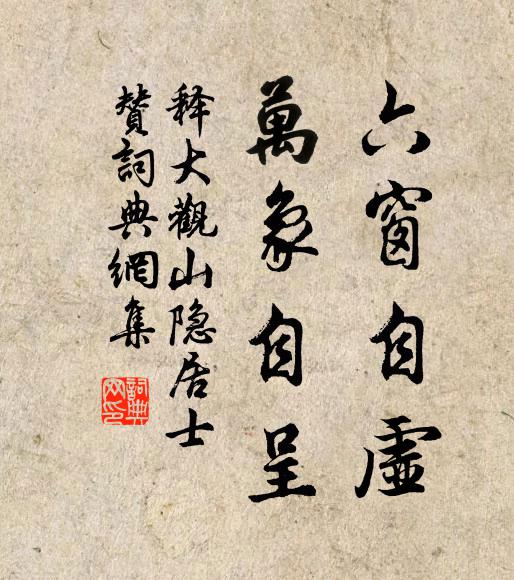 六窗自虛
萬象自呈
释大觀山隐居士
贊詞典網集
詞典
网印